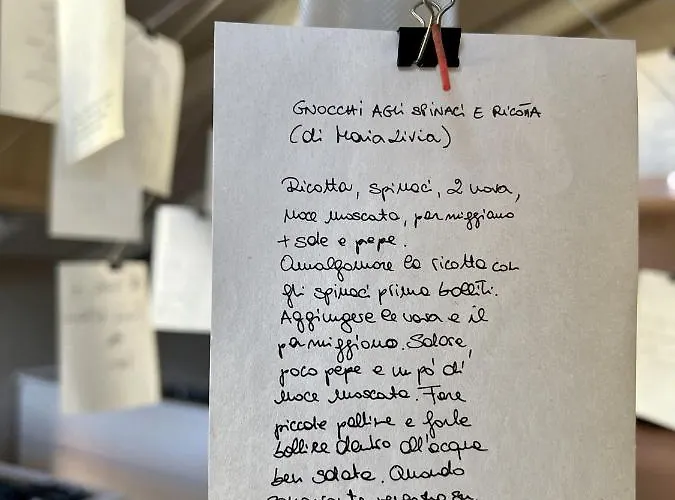 GNOCCHI AGLI SPINACI E RICOTTA
(di Maria Livia)
Ricotta, spinaci, 2 uova,
noce moscata, parmiggiano
+ sale e pepe.
Amalgamare la ricotta con
gli spinaci prima bolliti.
Aggiungere le uova e il
parmiggiano. Salare,
poco pepe e un po' di
noce moscata. Fare
piccole palline e farle
bollire dentro all'acqua
ben salata. Quando